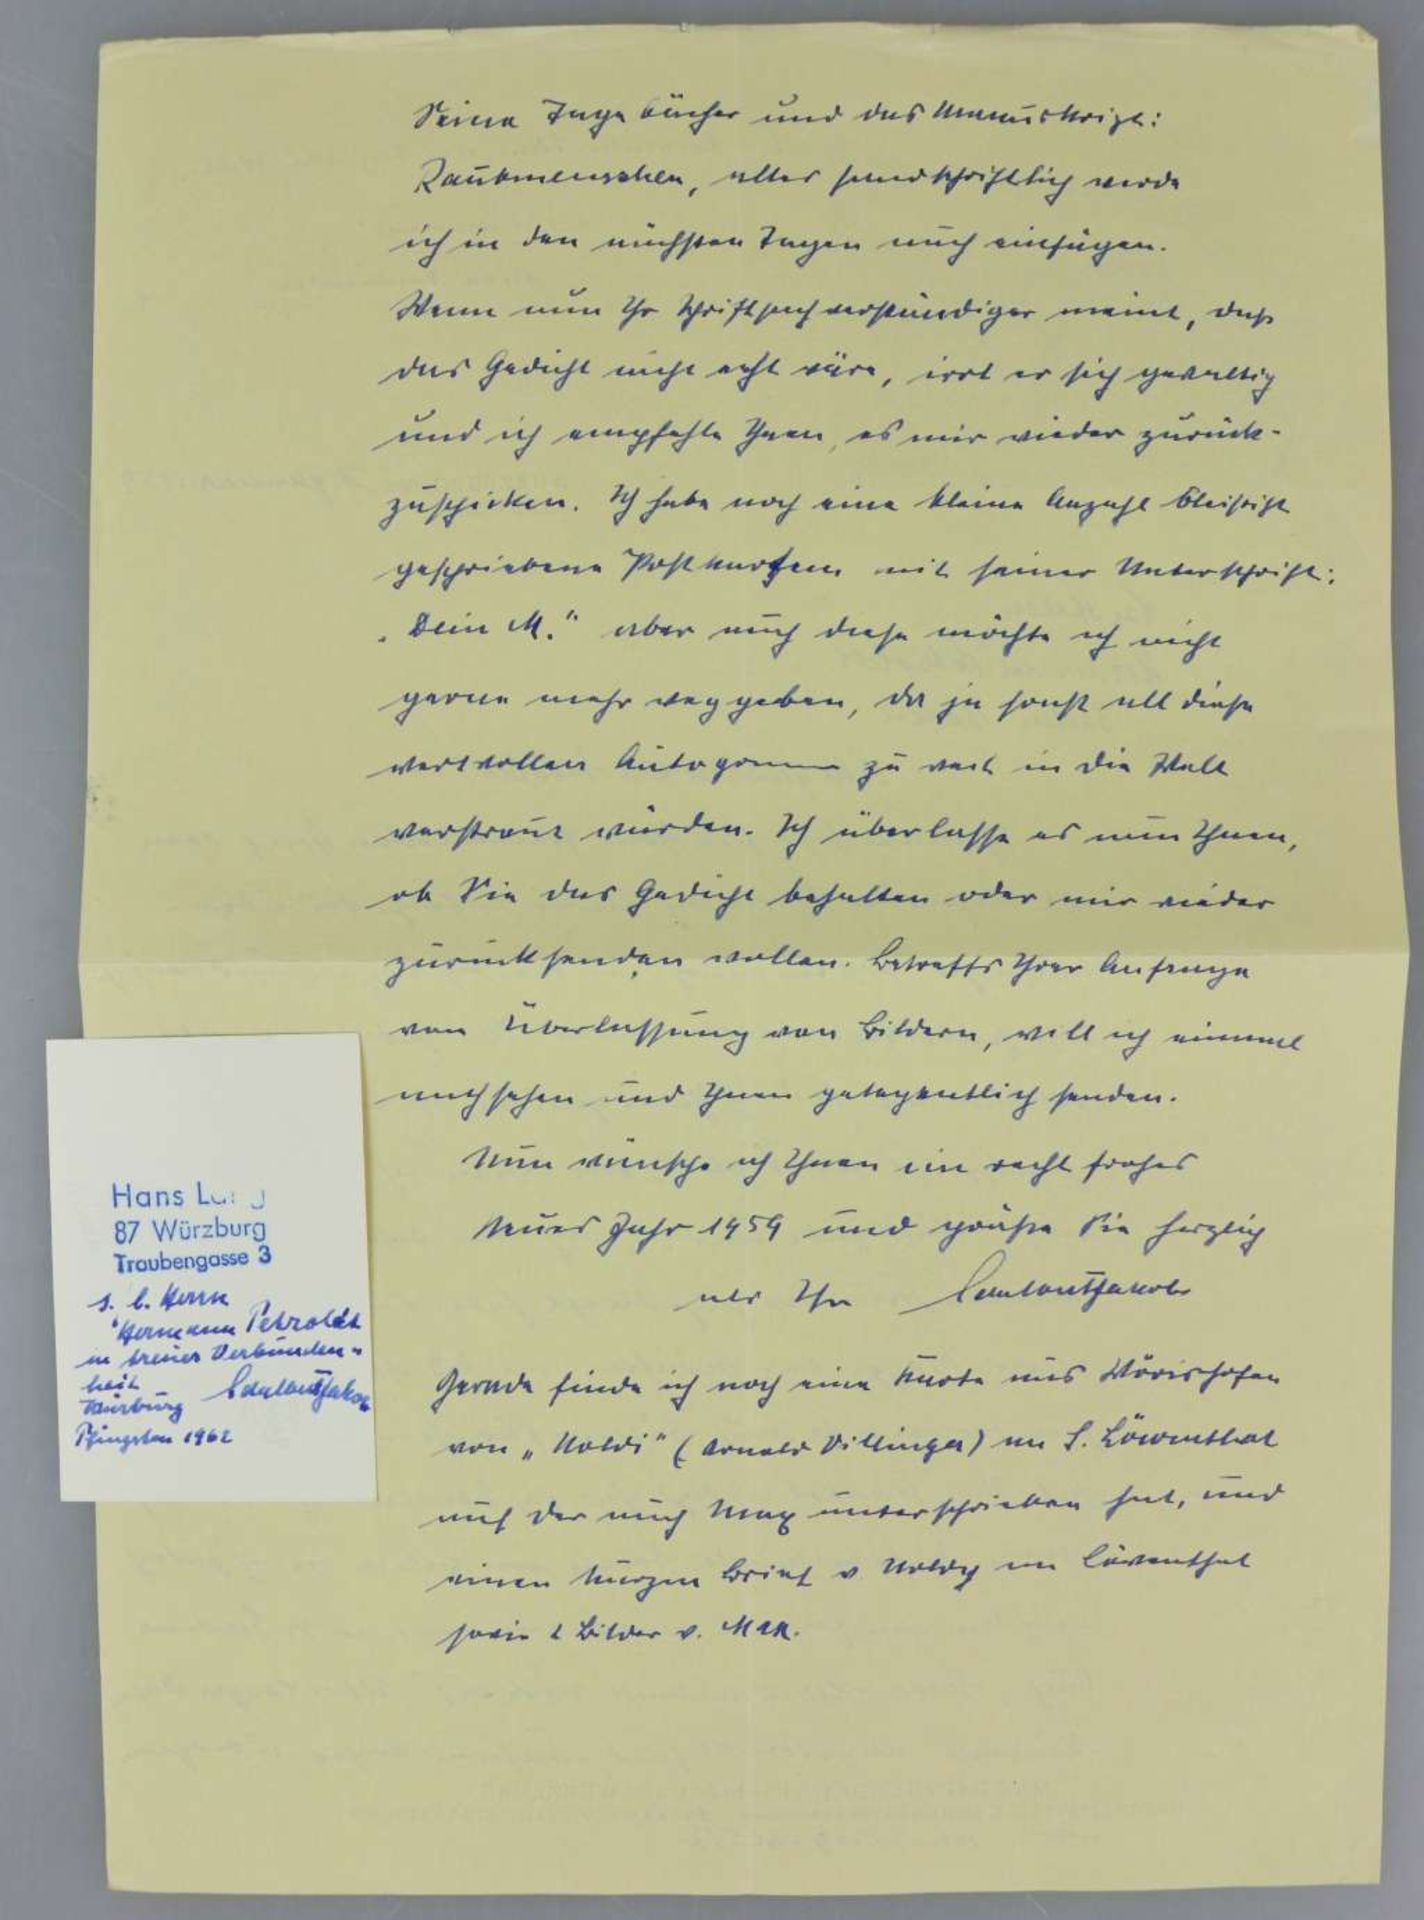 Seine Tagebücher und das Manuskript:
Raubmenschen, alles handschriftlich werde
ich in den nächsten Tagen auch einfügen.
Wenn nun Ihr Schriftsachverständiger meint, daß
das Gedicht nicht echt wäre, irrt er sich gewaltig
und ich empfehle Ihnen, es mir wieder zurück-
zuschicken. Ich habe noch eine kleine Anzahl Bleistift
geschriebene Postkarten mit seiner Unterschrift:
„Dein M." aber auch diese möchte ich nicht
gerne mehr weggeben, da ja sonst all diese
wertvollen zu weit in die Welt
verstreut würden. Ich überlasse es nun Ihnen,
ob Sie das Gedicht behalten oder mir wieder
zurücksenden wollen. Betreffs Ihrer Anfrage
von Überlassung von Bildern, will ich einmal
nachsehen und Ihnen gelegentlich senden.
Nun wünsche ich Ihnen ein recht frohes
Neues Jahr 1959 und grüße Sie herzlich
als Ihr
Gerade finde ich noch eine Karte aus Wörishofen
von „Noldi" (Arnold Villinger) an S. Löwenthal
auf der auch Max unterschrieben hat, und
einen kurzen Brief v Noldy an Löwenthal
sowie 2 Bilder v. Max.
Hans
87 Würzburg
Traubengasse 3
s. l. Herrn
Hermann Petzoldt
in treuer Verbunden-
heit
Würzburg
Pfingsten 1962